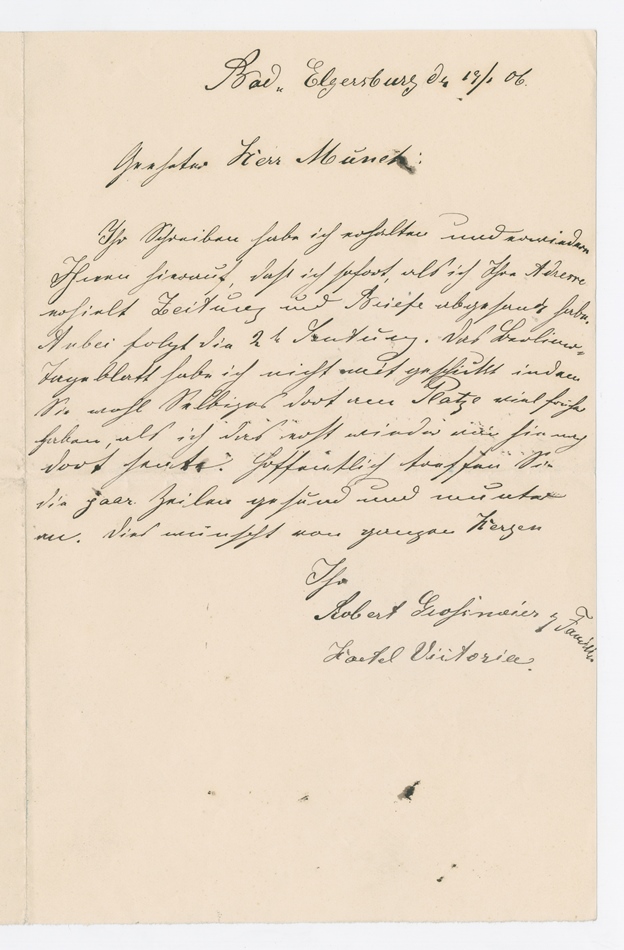 Bad. Elgersburg d. 19/1 06.
Geehrter Herr Munch:
Ihr Schreiben habe ich erhalten und erwiedere
Ihnen hierauf, daß ich sofort, als ich Ihre Adresse
erhielt Zeitung und Briefe abgesandt habe.
Anbei folgt die 2te Sendung. Das Berliner-
Tageblatt habe ich nicht mit geschickt indem
Sie wohl Selbiges dort am Platze viel früher
haben, als ich das erst wieder von hier nach
dort sende. Hoffentlich treffen Sie
die paar Zeilen gesund und munter
an. Dies wünscht von ganzen Herzen
Ihr
Robert Großmeier & Familie
Hotel Victoria.